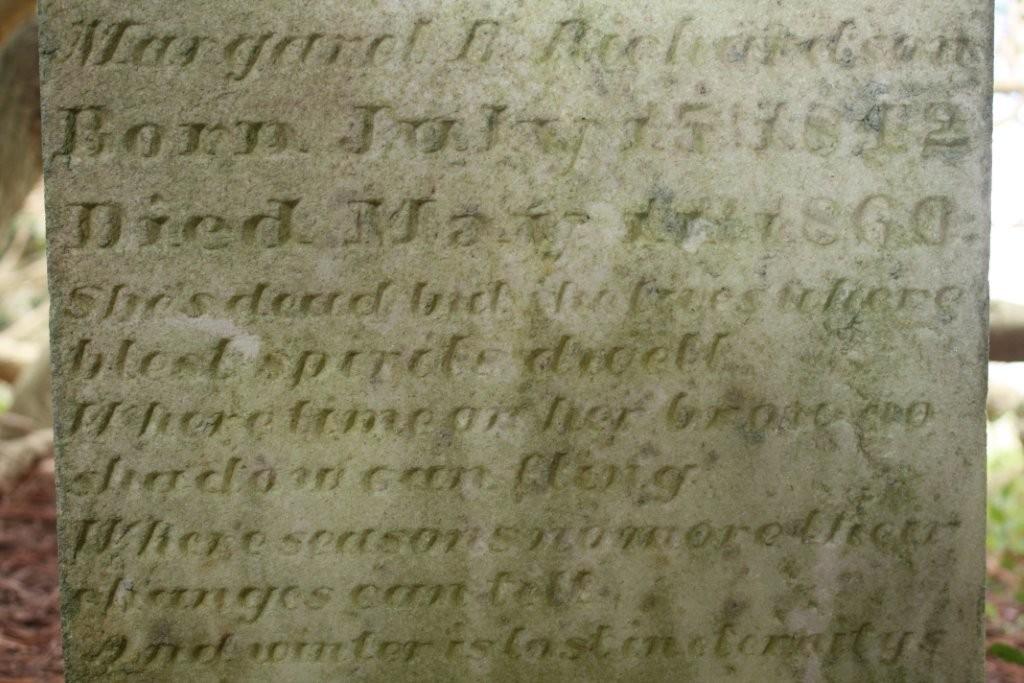 Margaret B. Richardson
Born July 15th 1812
Died May 11th 1860.
She's dead but she lives where
blest spirits dwell
Where time on her brow no
shadow can fling
Where seasons no more their
changes can tell
And winter is lost in eternitys